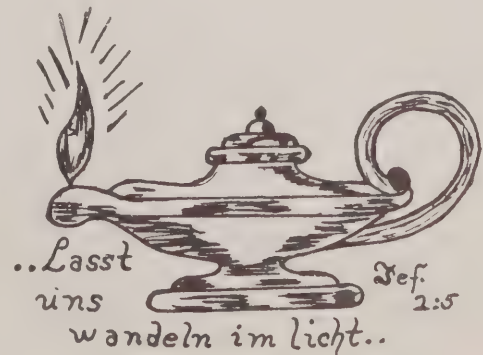 ..Lasst
uns
wandeln im licht..
Jef.
2:5